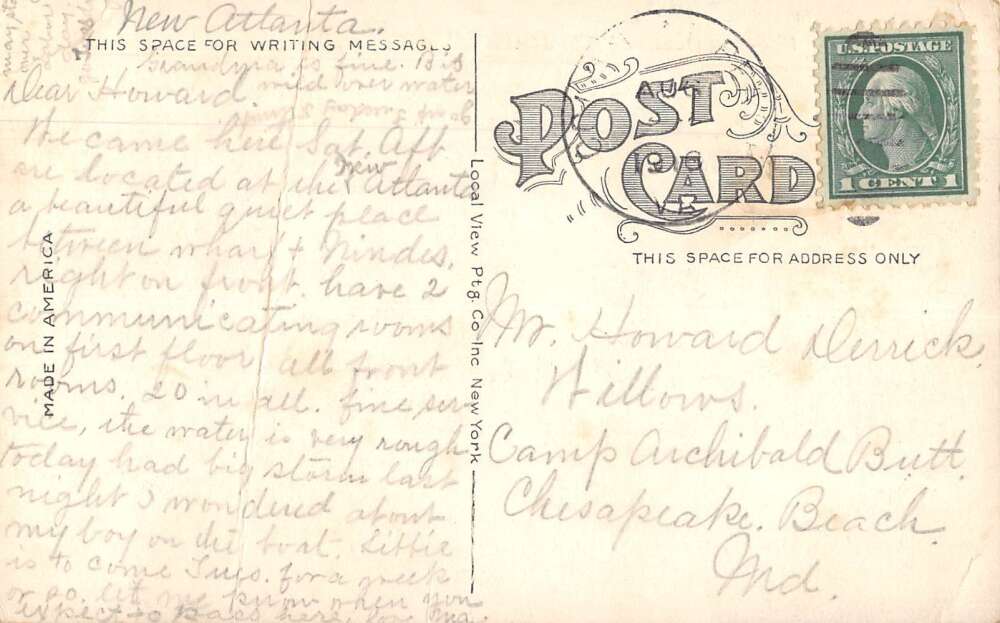 New Atlanta.
THIS SPACE FOR WRITING MESSAGES
Grandma is fine. It is
wild over water
Dear Howard.
We came here Sat. Aft
are located at the New Atlanta
a beautiful quiet place
between wharf + Nindes.
right on front. have 2
communicating rooms
on first floor all front
rooms. 20 in all. fine ser-
vice, the water is very rough
today had big storm last
night I wondered about
my boy on the boat. Littie
is to come Tues. for a week
or so. let me know when you
expect to pass here, Ma.
MADE IN AMERICA
Local View Ptg. Co Inc New York
POST CARD
AUG
VA
U.S. POSTAGE
1 CENT 1
THIS SPACE FOR ADDRESS ONLY
Mr. Howard Derrick
Willows.
Camp Archibald Butt
Chesapeake. Beach
Md.